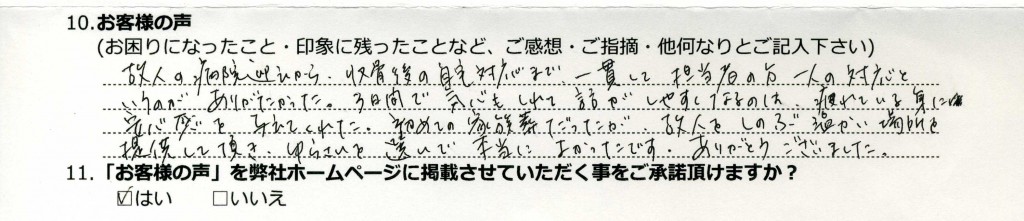 10.お客様の声
(お困りになったこと・印象に残ったことなど、ご感想・ご指摘・他何なりとご記入下さい)
故人の病院迎えから、収骨後の自宅対応まで、一貫して担当者の方一人の対応と
いうのが ありがたかった。3日間で 気心もしれて 話が しやすくなるのは、疲れている身には
安心感を 与えてくれた。初めての家族葬だったが 故人をしのぶ 温かい場所を
提供して頂き、ゆらさいを 選いで 本当に よかったです。ありがとうございました。
11.「お客様の声」を弊社ホームページに掲載させていただく事をご承諾頂けますか？
☑はい □いいえ